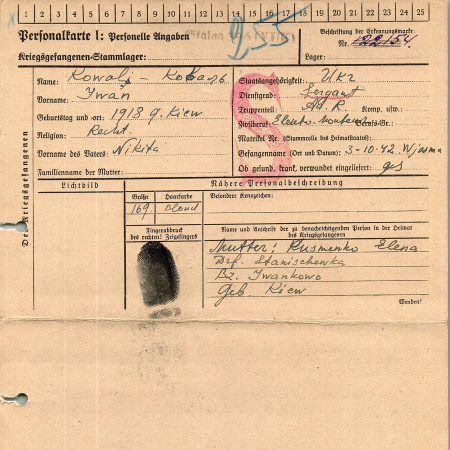 1 2 3 4 5 6 7 8 9 10 11 12 13 14 15 16 17 18 19 20 21 22 23 24 25
Personalkarte I: Personelle Angaben
Kriegsgefangenen-Stammlager:
Stalag
255
Beschriftung der Erkennungsmarke
Nr. 122154
Lager:
Des Kriegsgefangenen
Name: Kowalj - Kobasa
Vorname: Iwan
Geburtstag und -ort: 1918 g. Kiew
Religion: Recht.
Vorname des Vaters: Nikita
Familienname der Mutter:
Staatsangehörigkeit: Ukr
Dienstgrad: Sergant
Truppenteil: R. Komp. usw.:
Zivilberuf: Elektro-monteur Berufs-Gr.:
Matrikel Nr. (Stammrolle des Heimatstaates):
Gefangennahme (Ort und Datum): 3-10-42 Wjasma
Ob gesund, krank, verwundet eingeliefert: ges
Lichtbild
Nähere Personalbeschreibung
Größe Haarfarbe
169. Blond
Besondere Kennzeichen:
Fingerabdruck
des rechten! Zeigefingers
Name und Anschrift der zu benachrichtigenden Person in der Heimat
des Kriegsgefangenen
Mutter: Kusmenko Elena
Drf. Stanischewka
Bz. Iwankowo
Geb. Kiew
Wenden!